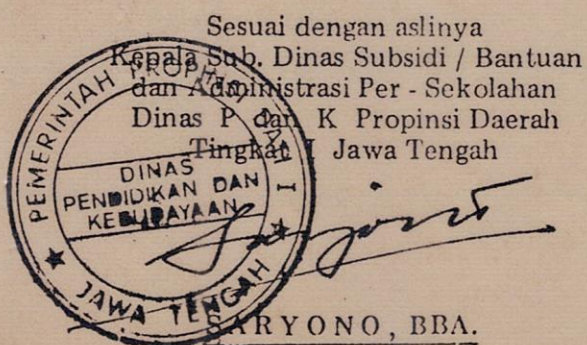 Sesuai dengan aslinya
Kepala Sub. Dinas Subsidi / Bantuan
dan Administrasi Per - Sekolahan
Dinas P dan K Propinsi Daerah
Tingkat I Jawa Tengah
PEMERINTAH PROPINSI DATI I
DINAS
PENDIDIKAN DAN
KEBUDAYAAN
JAWA TENGAH
SARYONO, BBA.